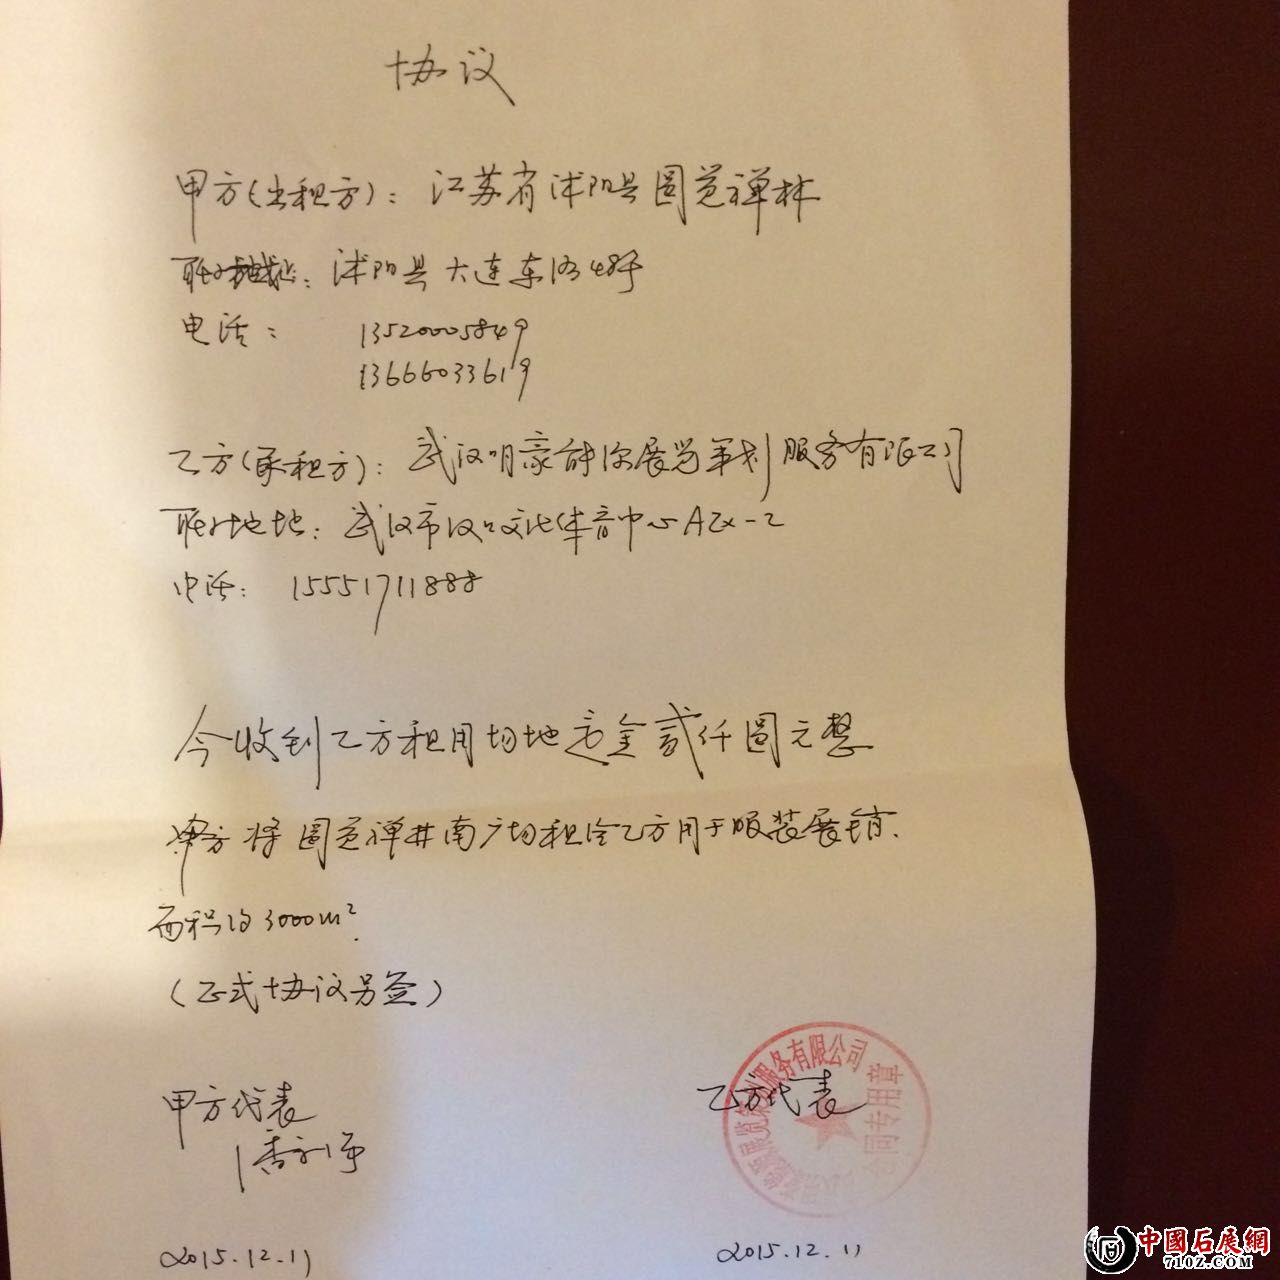 协议
甲方(出租方)：江苏省沭阳县圆觉禅林
联系地址：沭阳县大连东路48号
电话：13520005849
13666033619
乙方(承租方)：武汉明豪能源展览策划服务有限公司
联系地地：武汉市汉口文化体育中心A区x-2
电话：15551711888
今收到乙方租用场地定金贰仟圆元整
甲方将圆觉禅林南广场租给乙方用于服装展销.
面积约3000m².
(正式协议另签)
甲方代表
乙方代表
展览策划服务有限公司
合同专用章
2015.12.11
2015.12.11
中國石展網
7102.COM